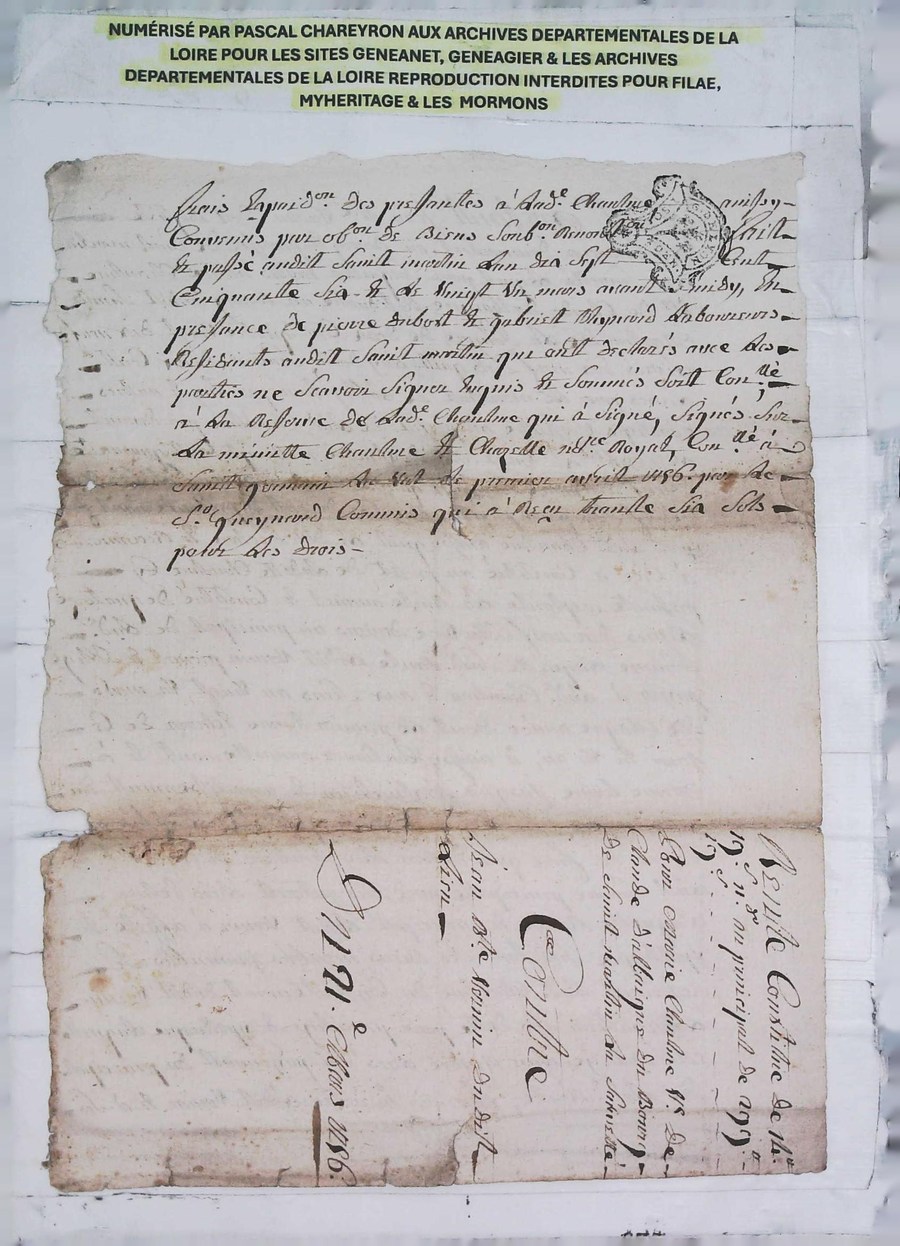 NUMÉRISÉ PAR PASCAL CHAREYRON AUX ARCHIVES DEPARTEMENTALES DE LA
LOIRE POUR LES SITES GENEANET, GENEAGIER & LES ARCHIVES
DEPARTEMENTALES DE LA LOIRE REPRODUCTION INTERDITES POUR FILAE,
MYHERITAGE & LES MORMONS
frais Expeidon des pressantes à Lade Chaulme ainssy-
Convenus par obon de Biens Soubon Renon fait
& passé audit Saint martin Lan dix Sept Cent
Cinquante Six & Le Vingt Un mars avant midy, En
pressance de pierre dubost & gabriell Laboureurs
Ressidants audit Saint martin qui ont declarés avec Les
parties ne Scavoir Signer Enquis & Sommés Soit Conllé
à La Reserve de Lade Chaulme qui à Signé, Signés Sur
La minutte Chaulme & Chazelle nore Royal, Conllé à
Saint germain La Val Le premier avril 1756. par Le
Sr gueynard Commis qui à Reçu trante Six Sols
pour Les drois
Rente Constitue de
au principal de 299
Pour Marie Chaulme Ve De
Claude du Bourg
De Saint martin La Sauveté
Contre
Jean Bte Vernin dudit
Lieu
Du 21e Mars 1756.